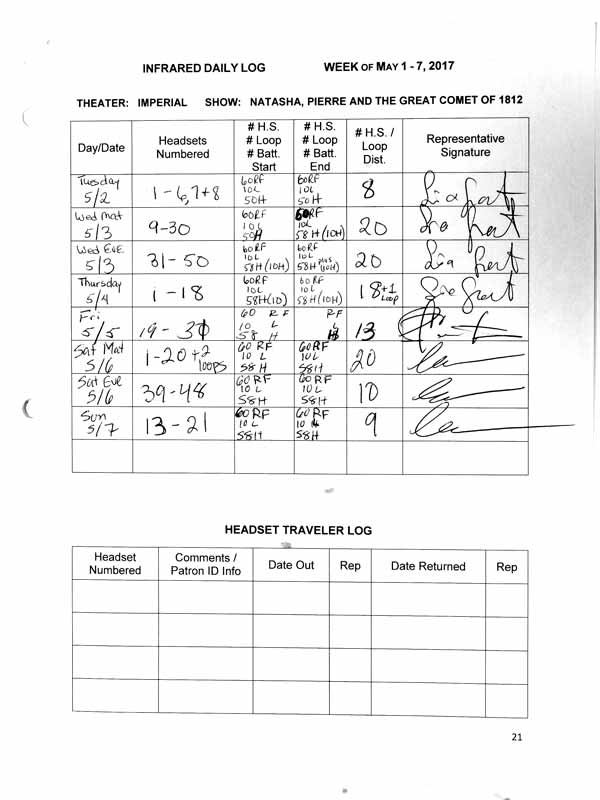 INFRARED DAILY LOG WEEK OF MAY 1 - 7, 2017
THEATER: IMPERIAL SHOW: NATASHA, PIERRE AND THE GREAT COMET OF 1812
Day/Date
Headsets
Numbered
# H.S.
# Loop
# Batt.
Start
# H.S.
# Loop
# Batt.
End
# H.S. /
Loop
Dist.
Representative
Signature
Tuesday
5/2
1-6,7+8
60RF
10L
50H
60RF
10L
50H
8
Wed Mat
5/3
9-30
60RF
10L
50H
60RF
10L
58H(10H)
20
Wed Eve
5/3
31-50
60RF
10L
58H(10H)
60RF
10L
58H plus (10H)
20
Thursday
5/4
1-18
60RF
10L
58H(10)
60RF
10L
58H(10H)
18+1
Loop
Fri
5/5
19-31
60 RF
10 L
58 H
RF
L
H
13
Sat Mat
5/6
1-20+2
loops
60RF
10 L
58H
60RF
10L
58H
20
Sat Eve
5/6
39-48
60RF
10L
58H
60RF
10L
58H
10
Sun
5/7
13-21
60RF
10L
58H
60RF
10
58H
9
HEADSET TRAVELER LOG
Headset
Numbered
Comments /
Patron ID Info
Date Out
Rep
Date Returned
Rep
21